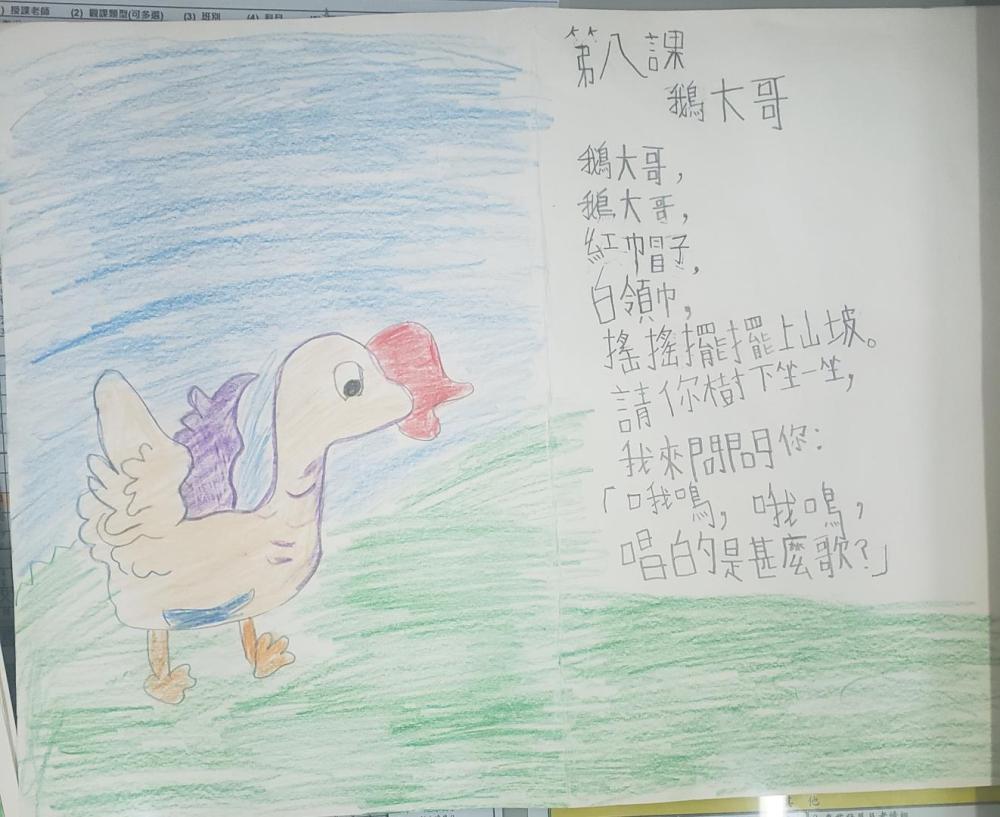 ) 授課老師 (2) 觀課類型(可多選) (3) 班別 (4) 科目
第八課
鵝大哥
鵝大哥,
鵝大哥,
紅帽子,
白領巾,
搖搖擺擺上山坡。
請你樹下坐一坐,
我來問問你:
「哦鳴,哦鳴,
唱白的是甚麼歌?」
他